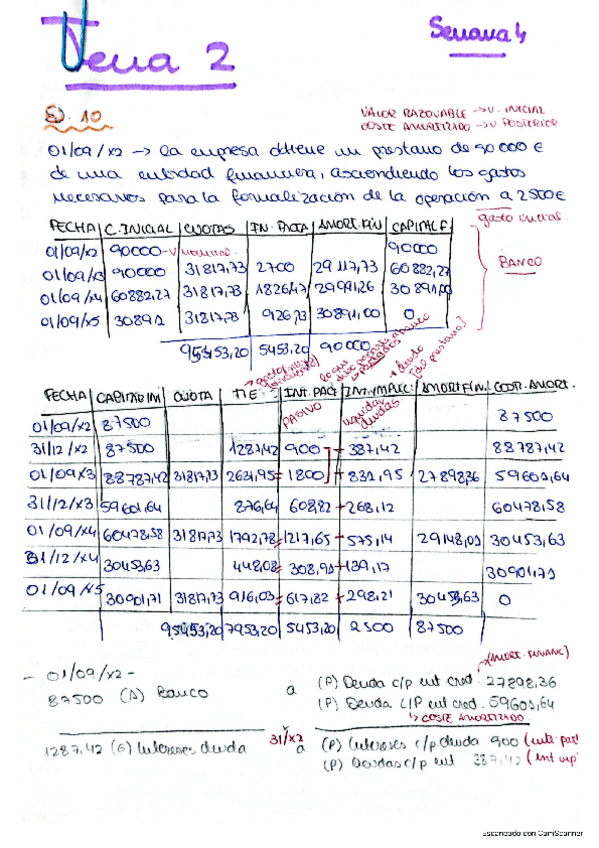 Tema 2
Semana 4
Ej. 10
VALOR RAZONABLE → V. INICIAL
COSTE AMORTIZADO → V. POSTERIOR
01/09/x2 → La empresa obtiene un prestamo de 90 000 €
de una entidad financiera, ascendiendo los gastos
necesarios para la formalización de la operación a 2500€
gasto inicial.
FECHA | C. INICIAL | CUOTAS | IN. PACTA | AMORT. FIN | CAPITAL F.
01/09/x2 | 90000 → V. nominal. | 90000
01/09/x3 | 90000 | 31817,73 | 2700 | 29117,73 | 60882,27
01/09/x4 | 60882,27 | 31817,73 | 1826,47 | 29991,26 | 30891,00
01/09/x5 | 30891 | 31817,73 | 926,73 | 30891,00 | 0
BANCO
95453,20 | 5453,20 | 90000
FECHA | CAPITAL INI | CUOTA | TIE | INT. PACT | INT. IMPLIC. | AMORT. FIN. | COST. AMORT.
PASIVO
01/09/x2 | 87500 | 87500
31/12/x2 | 87500 | 1287,42 | 900 → 387,42 | 88787,42
01/09/x3 | 88787,42 | 31817,73 | 2631,95 = 1800 + 831,95 | 27898,36 | 59601,64
31/12/x3 | 59601,64 | 876,64 | 608,82 + 268,12 | 60478,58
01/09/x4 | 60478,58 | 31817,73 | 1792,78 = 1217,65 + 575,14 | 29148,01 | 30453,63
31/12/x4 | 30453,63 | 448,08 = 308,91 + 139,17 | 30901,71
01/09/x5 | 30901,71 | 31817,73 | 916,03 = 617,82 + 298,21 | 30453,63 | 0
95453,20 | 7953,20 | 5453,20 | 2500 | 87500
(AMORT. FINANC)
- 01/09/x2 -
87500 (A) Banco a (P) Deuda c/p ent cred. 27898,36
(P) Deuda L/P ent cred. 59601,64
↳ COSTE AMORTIZADO
31/x2
1287,42 (G) Intereses deuda a (P) Intereses c/p deuda 900
(P) Deudas c/p ent 387,42
Escaneado con CamScanner